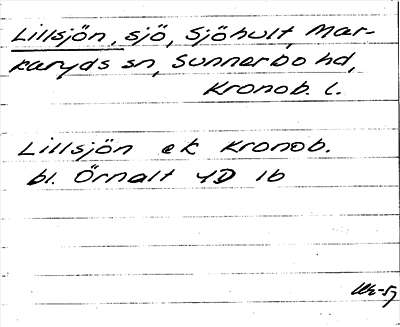 Lillsjön, sjö, Sjöhult, Mar-
karyds sn, Sunnerbo hd,
Kronob. l.
Lillsjön ek Kronob.
bl. Örnalt 4D 1b